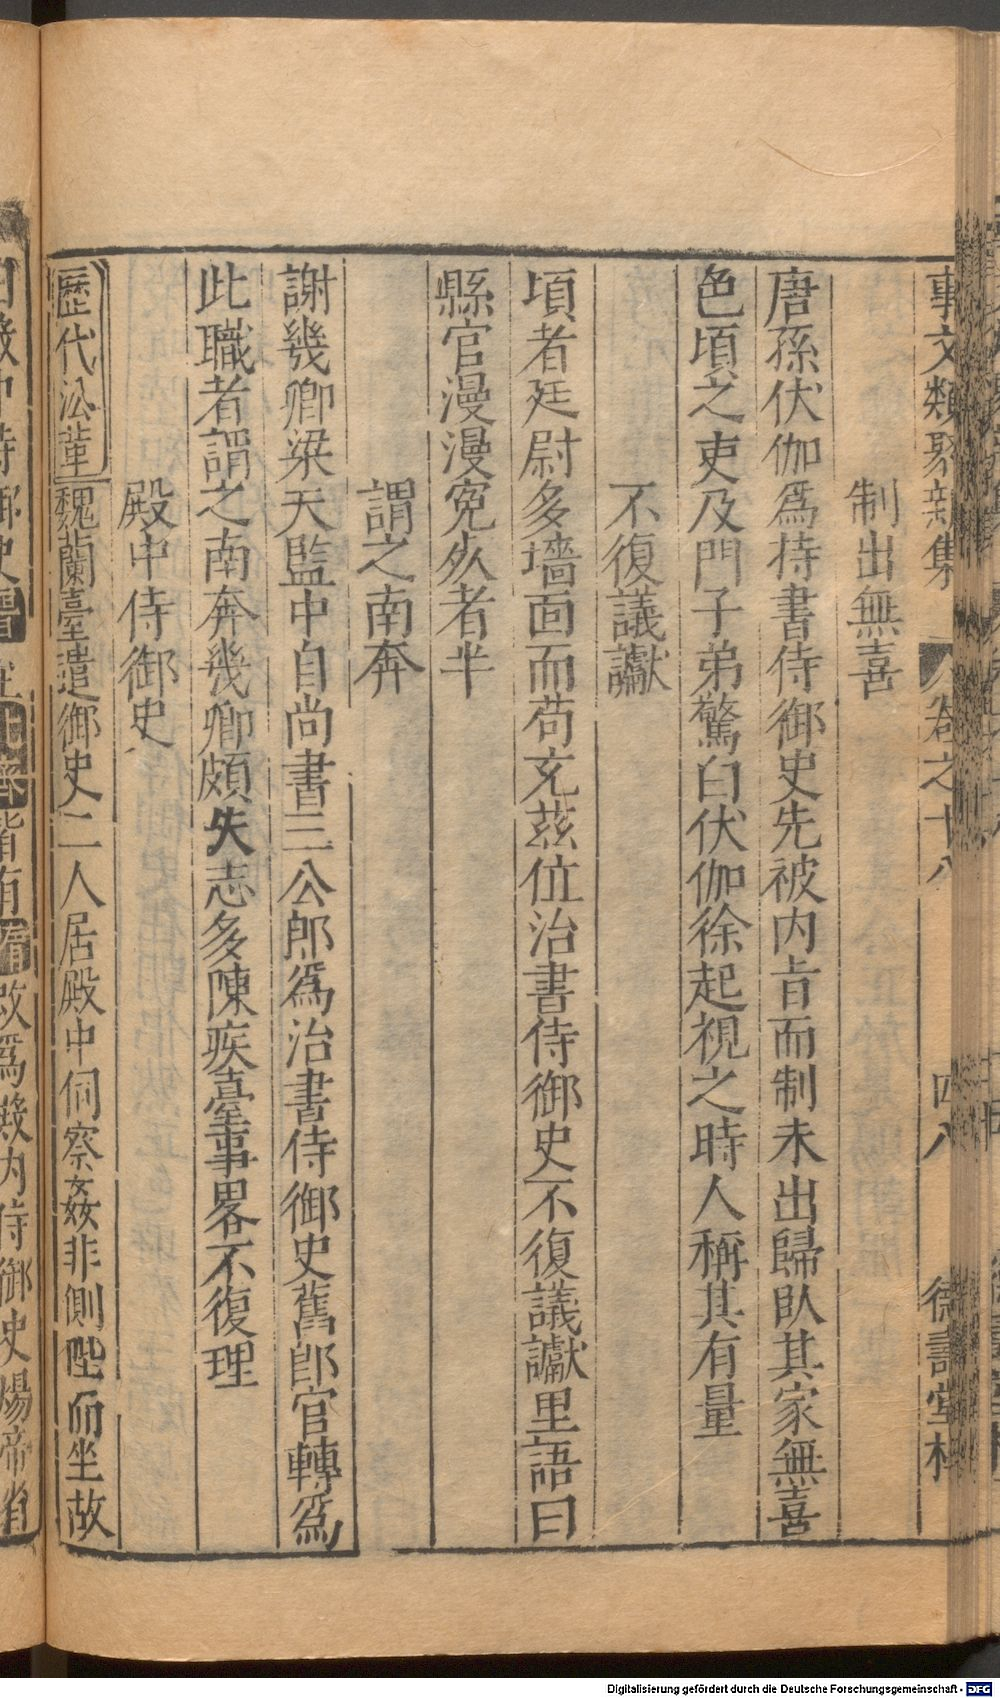 事文類聚新集 卷之十八 四八 德壽堂梓
制出無喜
唐孫伏伽爲持書侍御史先被内旨而制未出歸臥其家無喜
色頃之吏及門子弟驚白伏伽徐起視之時人稱其有量
不復議讞
頃者廷尉多墻面而苟充茲位治書侍御史不復議讞里語曰
縣官漫漫寃死者半
謂之南奔
謝幾卿梁天監中自尚書三公郎爲治書侍御史舊郎官轉爲
此職者謂之南奔幾卿頗失志多陳疾臺事畧不復理
殿中侍御史
歷代沿革 魏蘭臺遣御史二人居殿中伺察姦非側陛而坐故
曰殿中侍御史晉 皆有隋改爲殿内侍御史煬帝省
Digitalisierung gefördert durch die Deutsche Forschungsgemeinschaft - DFG